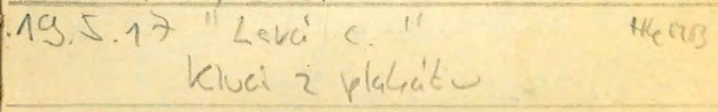 .19.5.17 "Levá c."
Kluci z plakátu